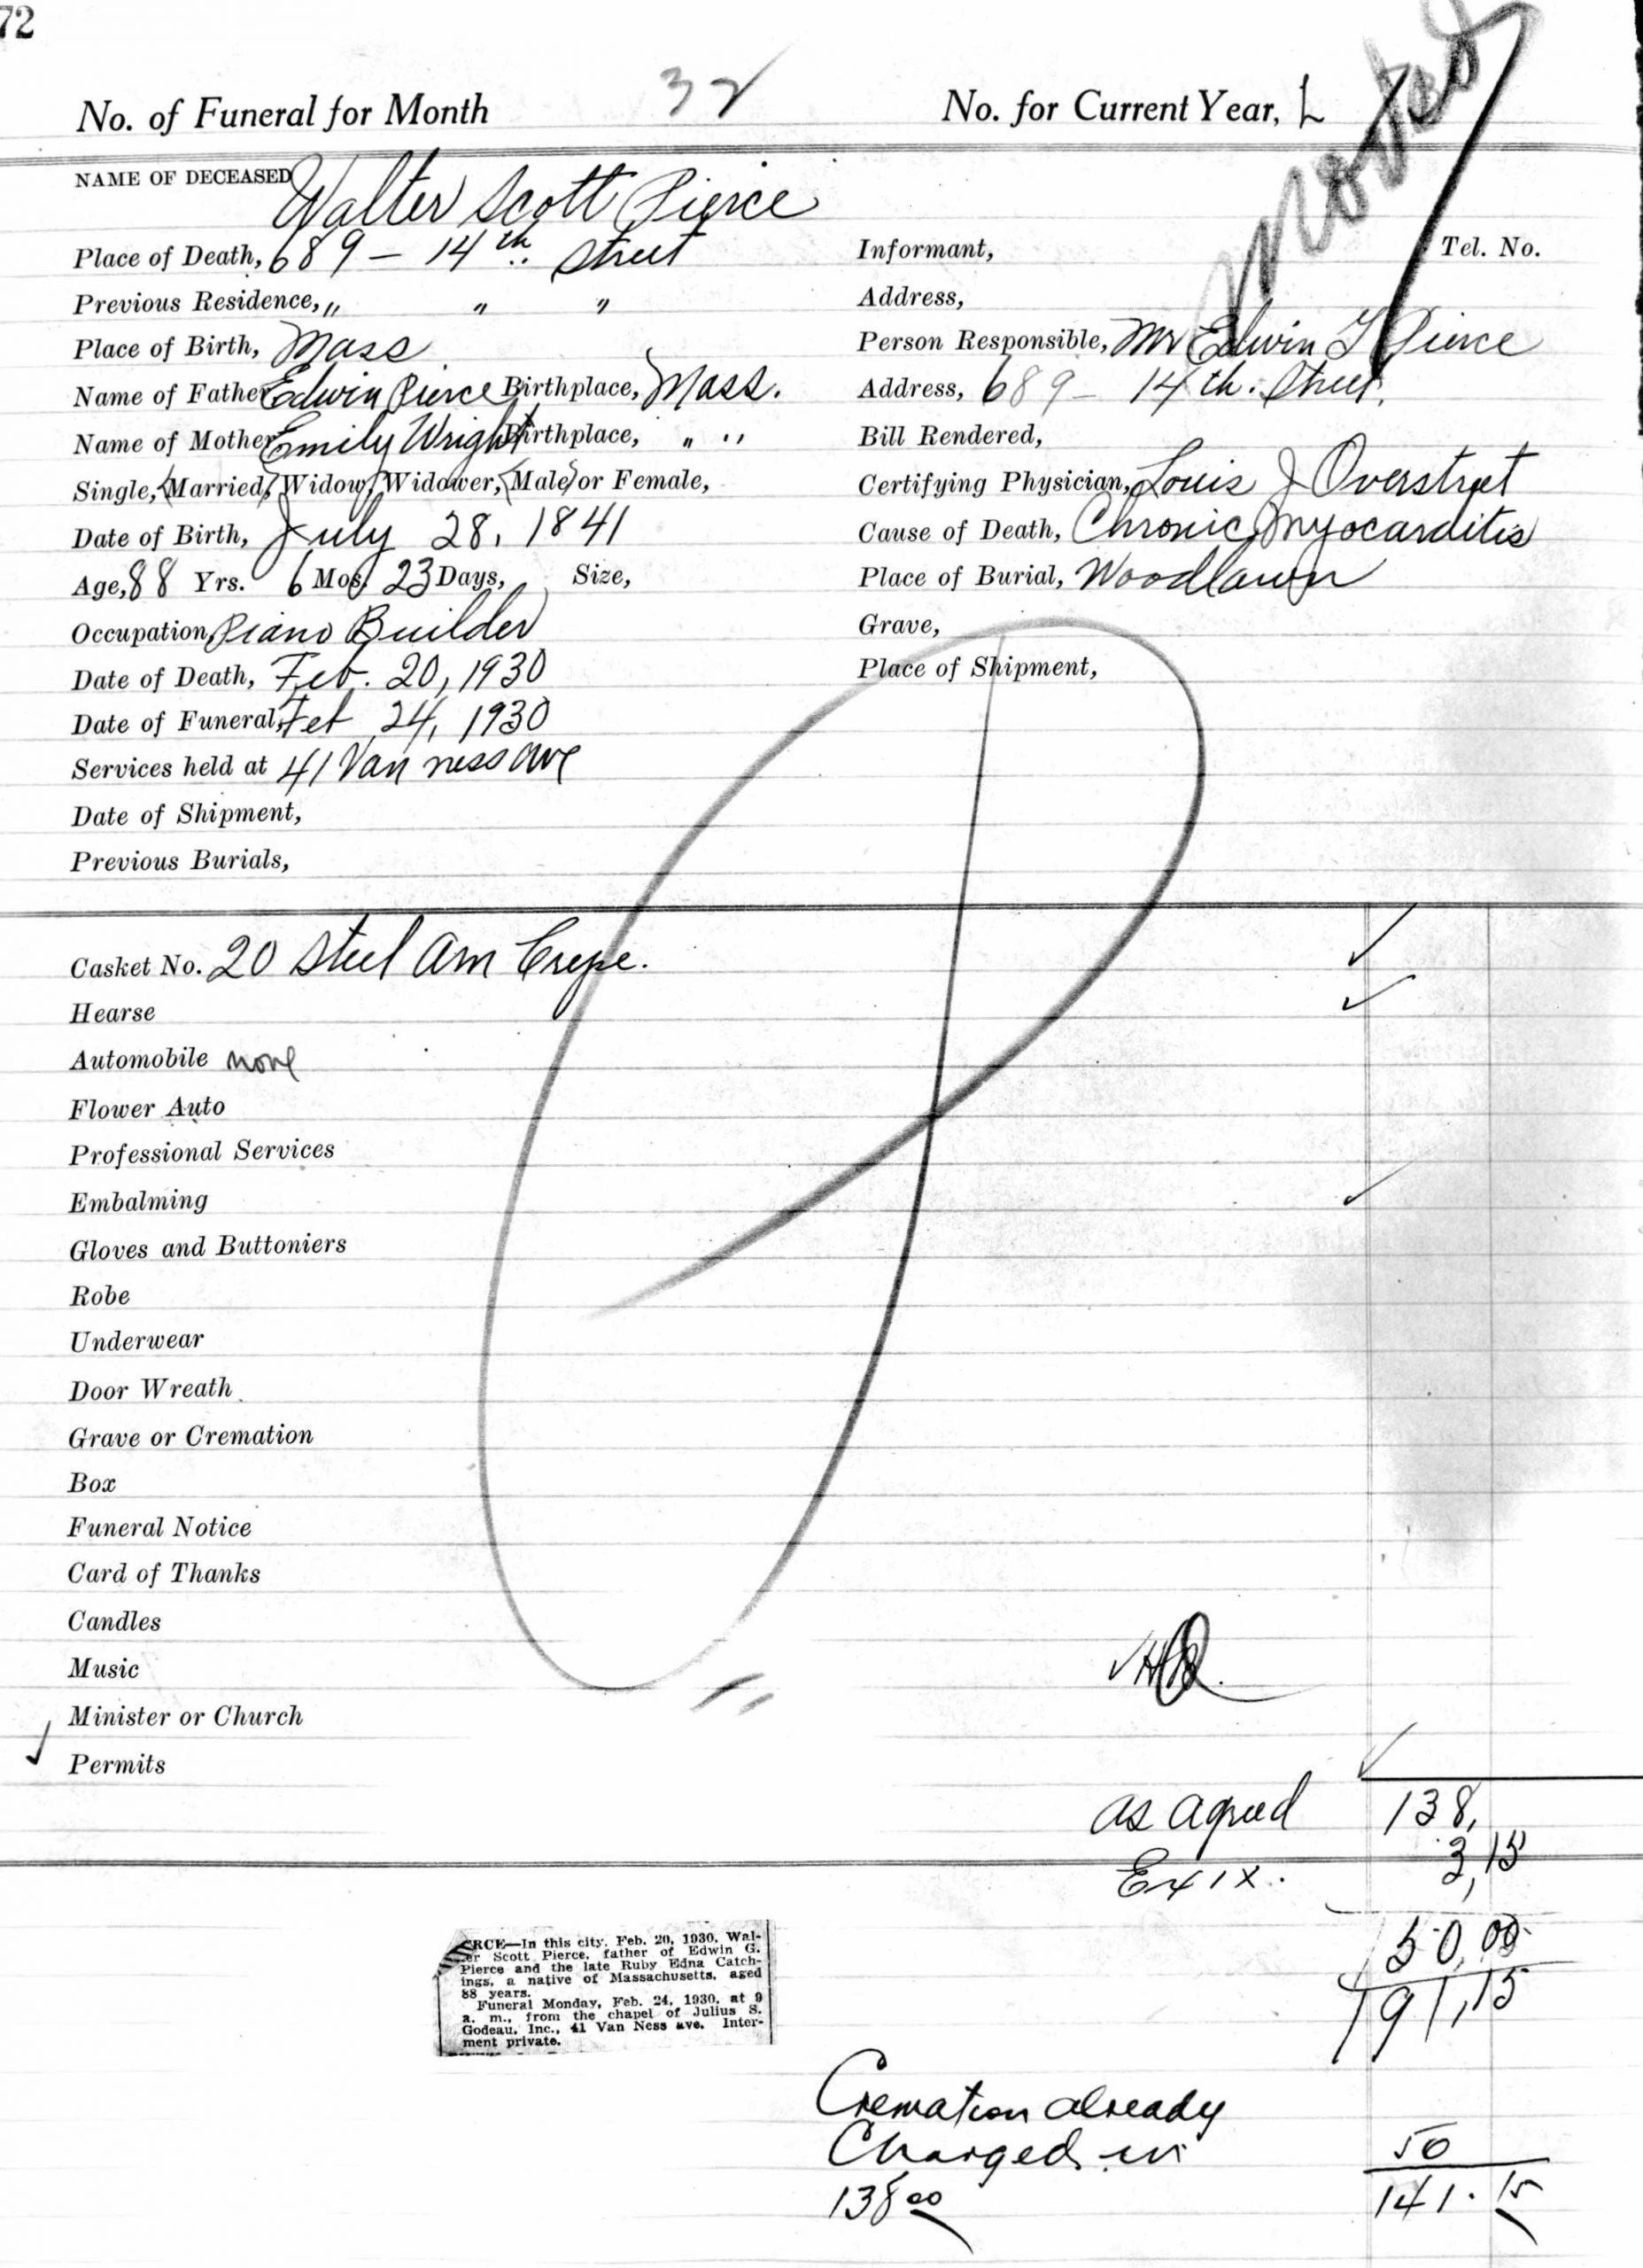 72
No. of Funeral for Month 32
No. for Current Year, L
Noted
NAME OF DECEASED Walter Scott Pierce
Place of Death, 689 – 14th. Street
Previous Residence, " " "
Place of Birth, Mass
Name of Father Edwin Pierce Birthplace, Mass.
Name of Mother Emily Wright Birthplace, " "
Single, (Married,) Widow, Widower, (Male) or Female,
Date of Birth, July 28, 1841
Age, 88 Yrs. 6 Mos. 23 Days, Size,
Occupation, Piano Builder
Date of Death, Feb. 20, 1930
Date of Funeral, Feb 24, 1930
Services held at 41 Van ness ave
Date of Shipment,
Previous Burials,
Informant, Tel. No.
Address,
Person Responsible, Mr Edwin Pierce
Address, 689 – 14th. Street.
Bill Rendered,
Certifying Physician, Louis J Overstreet
Cause of Death, Chronic Myocarditis
Place of Burial, Woodlawn
Grave,
Place of Shipment,
Casket No. 20 Steel Am Crepe.
Hearse
Automobile none
Flower Auto
Professional Services
Embalming
Gloves and Buttoniers
Robe
Underwear
Door Wreath
Grave or Cremation
Box
Funeral Notice
Card of Thanks
Candles
Music
Minister or Church
Permits
as agreed 138.
3,15
50,00
191,15
RCE—In this city, Feb. 20, 1930, Wal-
er Scott Pierce, father of Edwin G.
Pierce and the late Ruby Edna Catch-
ings, a native of Massachusetts, aged
88 years.
Funeral Monday, Feb. 24, 1930, at 9
a. m., from the chapel of Julius S.
Godeau, Inc., 41 Van Ness ave. Inter-
ment private.
Cremation already
Charged in 50
138.00 141.15